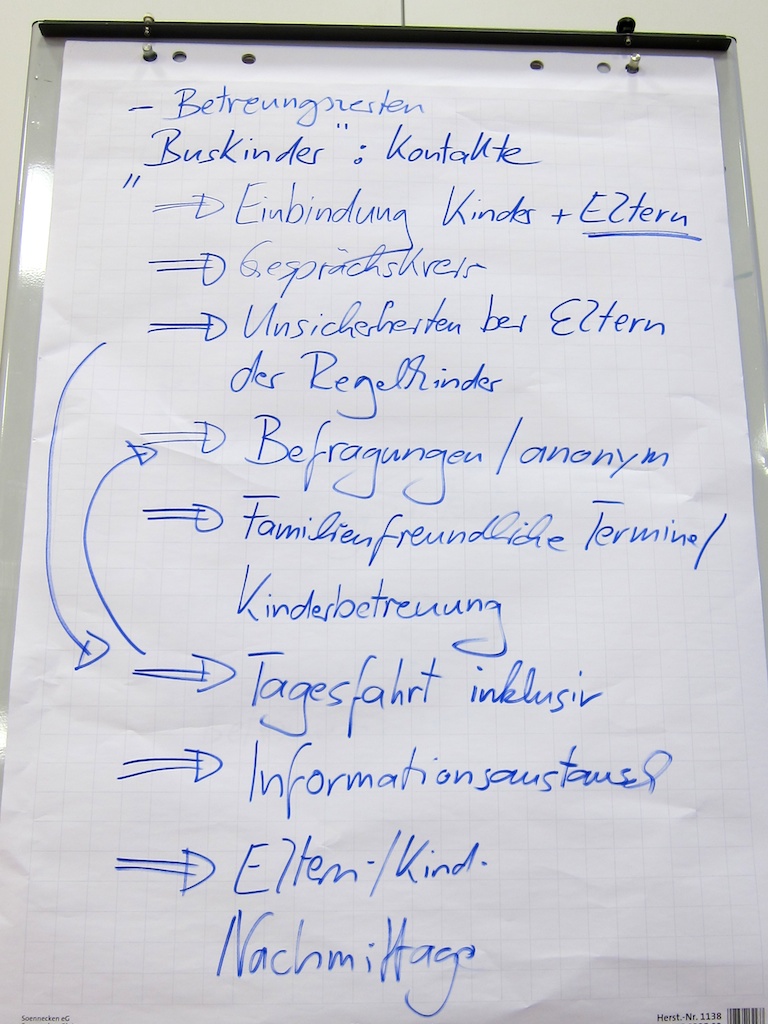 - Betreungszeiten
"Buskinder": Kontakte
⇒ Einbindung Kinder + Eltern
⇒ Gesprächskreis
⇒ Unsicherheiten bei Eltern
der Regelkinder
⇒ Befragungen / anonym
⇒ Familienfreundliche Termine /
Kinderbetreuung
⇒ Tagesfahrt inklusiv
⇒ Informationsaustausch
⇒ Eltern-/Kind-
Nachmittage
Soennecken eG
Herst.-Nr. 1138